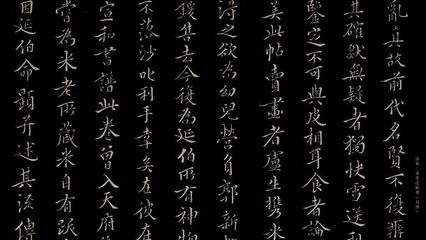 亂真故前代名賢不復辨
其確然無疑者獨快雪
鑒定不可與皮相耳食者論
美此帖賣畫者盧生攜米
得之欲為幼兒營負郭新
錢集去今後為延伯所有神物
不落沙叱利手幸矣在彼在
宣和書譜此卷曾入天府
嘗為米老所藏米自有跋
因延伯命題并述其流傳